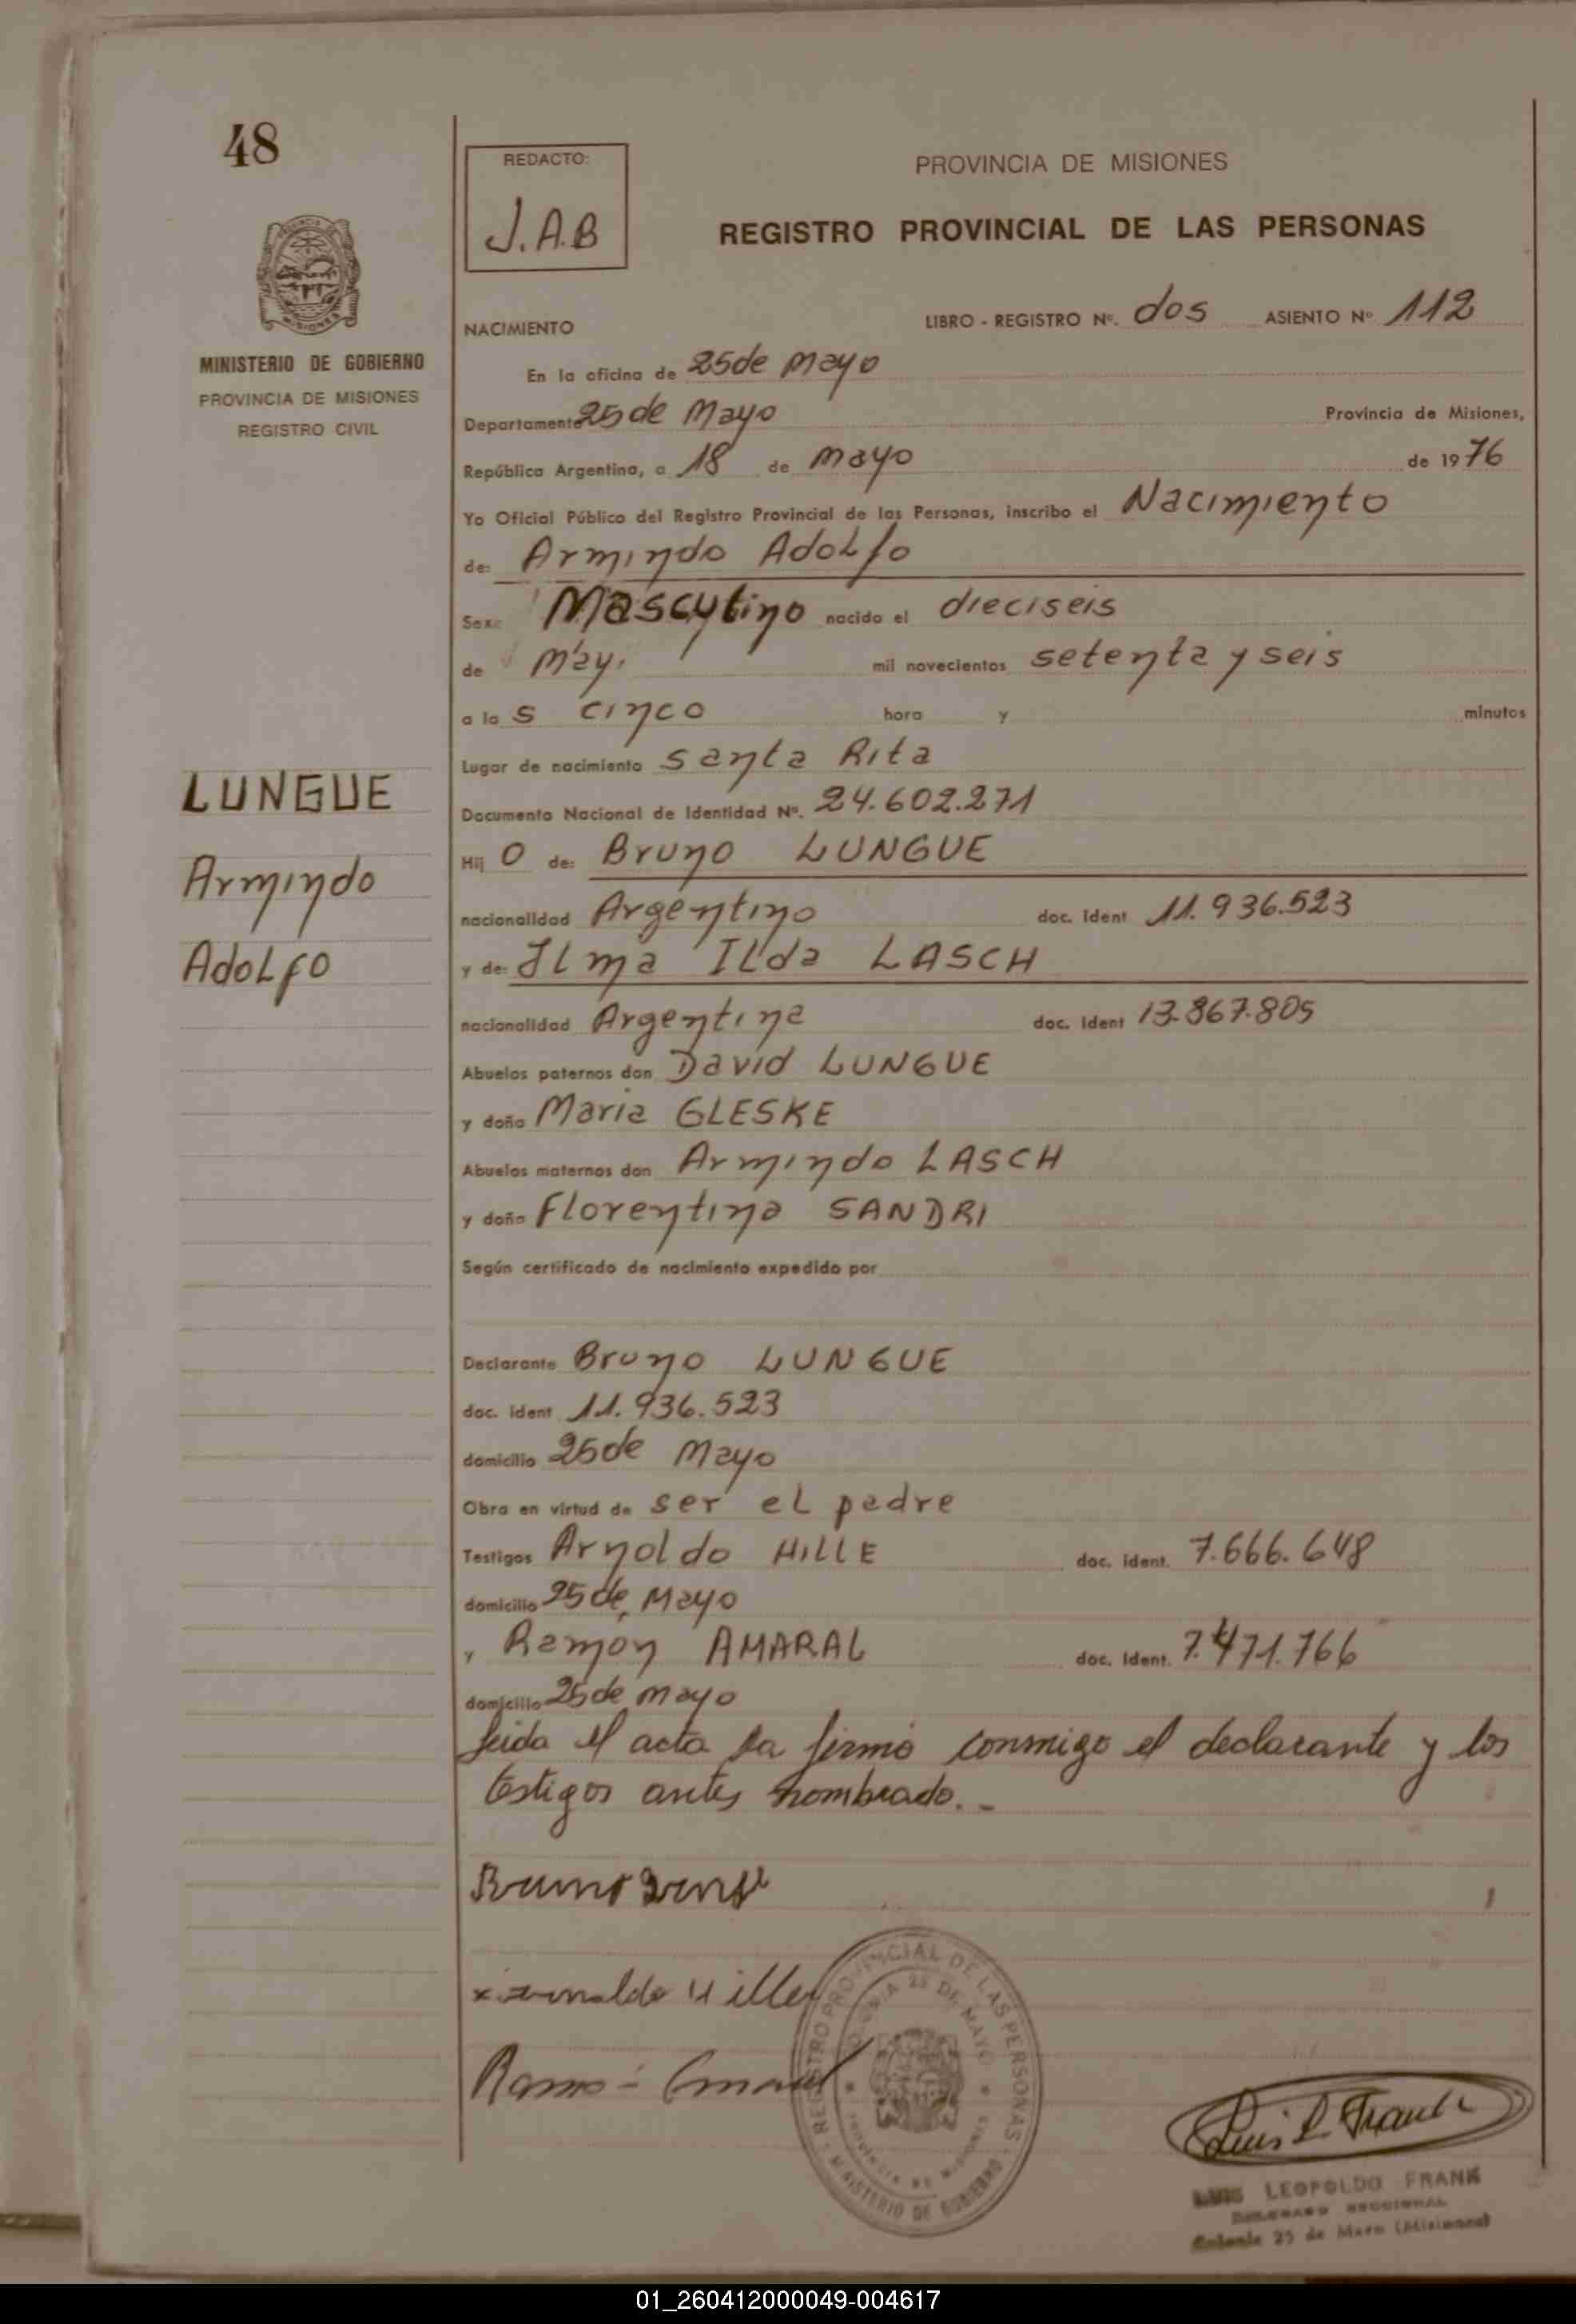 48
REDACTO:
J.A.B
PROVINCIA DE MISIONES
REGISTRO PROVINCIAL DE LAS PERSONAS
MINISTERIO DE GOBIERNO
PROVINCIA DE MISIONES
REGISTRO CIVIL
NACIMIENTO
LIBRO - REGISTRO Nº. dos ASIENTO Nº 112
En la oficina de 25 de Mayo
Departamento 25 de Mayo Provincia de Misiones,
República Argentina, a 18 de Mayo de 1976
Yo Oficial Público del Registro Provincial de las Personas, inscribo el Nacimiento
de: Armindo Adolfo
Sexo Masculino nacido el dieciseis
de May. mil novecientos setenta y seis
a la s cinco hora y minutos
Lugar de nacimiento Santa Rita
Documento Nacional de Identidad Nº. 24.602.271
LUNGUE
Armindo
Adolfo
Hij o de: Bruno LUNGUE
nacionalidad Argentino doc. ident 11.936.523
y de: Ilma Ilda LASCH
nacionalidad Argentina doc. ident 13.867.805
Abuelos paternos don David LUNGUE
y doña Maria GLESKE
Abuelos maternos don Armindo LASCH
y doña Florentina SANDRI
Según certificado de nacimiento expedido por
Declarante Bruno LUNGUE
doc. ident 11.936.523
domicilio 25 de Mayo
Obra en virtud de ser el padre
Testigos Arnoldo HILLE doc. ident. 7.666.648
domicilio 25 de Mayo
y Ramón AMARAL doc. ident. 7.471.766
domicilio 25 de Mayo
Leida el acta la firmó conmigo el declarante y los
testigos antes nombrado.-
Bruno
x Arnoldo Hille
REGISTRO PROVINCIAL DE LAS PERSONAS
COLONIA 25 DE MAYO
PROVINCIA DE MISIONES
MINISTERIO DE GOBIERNO
Luis L Frank
LUIS LEOPOLDO FRANK
Colonia 25 de Mayo (Misiones)
01_260412000049-004617